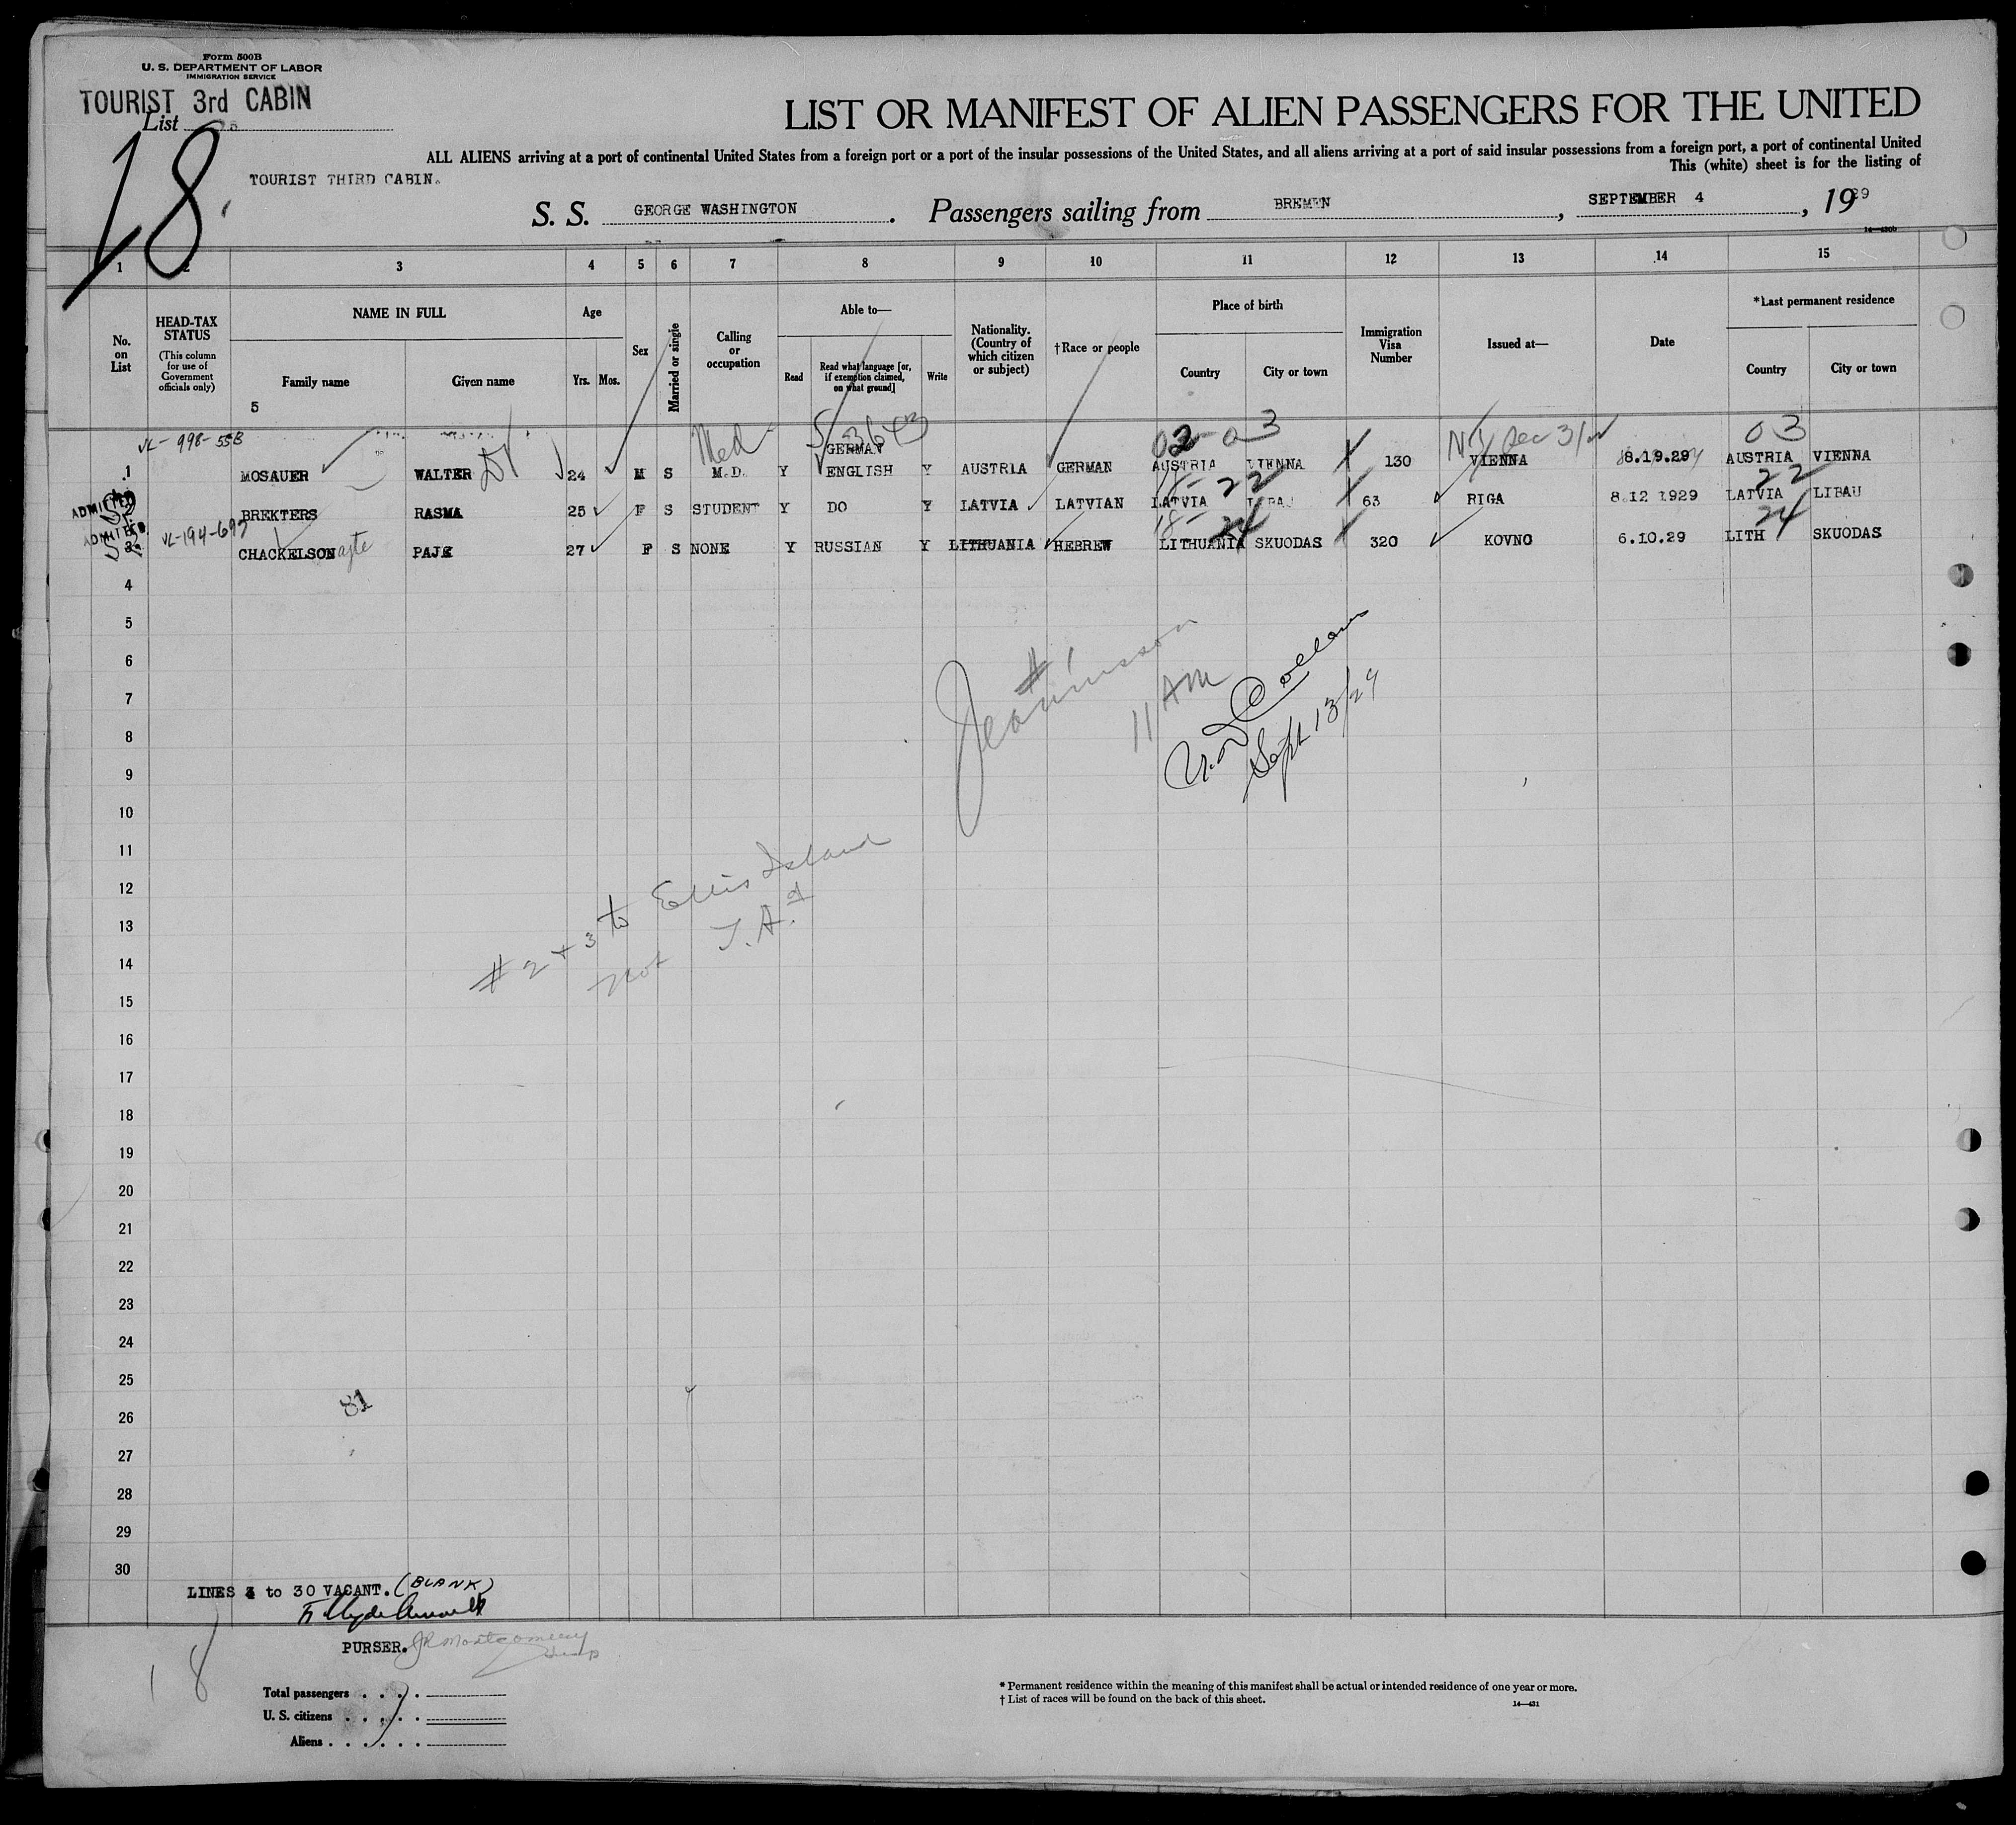 Form 500B
U. S. DEPARTMENT OF LABOR
IMMIGRATION SERVICE
TOURIST 3rd CABIN
List
18
LIST OR MANIFEST OF ALIEN PASSENGERS FOR THE UNITED
ALL ALIENS arriving at a port of continental United States from a foreign port or a port of the insular possessions of the United States, and all aliens arriving at a port of said insular possessions from a foreign port, a port of continental United
This (white) sheet is for the listing of
TOURIST THIRD CABIN.
S. S. GEORGE WASHINGTON . Passengers sailing from BREMEN , SEPTEMBER 4 , 1929
14—430b
1 2 3 4 5 6 7 8 9 10 11 12 13 14 15
No. on List
HEAD-TAX STATUS
(This column for use of Government officials only)
NAME IN FULL
Family name
Given name
Age
Yrs. Mos.
Sex
Married or single
Calling or occupation
Able to—
Read
Read what language [or, if exemption claimed, on what ground]
Write
Nationality. (Country of which citizen or subject)
†Race or people
Place of birth
Country
City or town
Immigration Visa Number
Issued at—
Date
*Last permanent residence
Country
City or town
5
VL-998-55B
Med
02-03
NY Dec 31
03
GERMAN
1 MOSAUER WALTER 24 M S M.D. Y ENGLISH Y AUSTRIA GERMAN AUSTRIA VIENNA 130 VIENNA 8.19.29 AUSTRIA VIENNA
22 22
ADMITTED
BREKTERS RASMA 25 F S STUDENT Y DO Y LATVIA LATVIAN LATVIA LIBAU 63 RIGA 8.12 1929 LATVIA LIBAU
ADMITTED
VL-194-697
18- 24 24
3 CHACKELSON ajte PAJE 27 F S NONE Y RUSSIAN Y LITHUANIA HEBREW LITHUANIA SKUODAS 320 KOVNO 6.10.29 LITH SKUODAS
4
5
6
7
8
9
10
11
12
13
14
15
16
17
18
19
20
21
22
23
24
25
26
27
28
29
30
#1
11 AM
Sept 13/29
#2+3 to Ellis Island
not T.A.
81
LINES 4 to 30 VACANT. (BLANK)
PURSER. JR Montgomery
18
Total passengers
U. S. citizens
Aliens
* Permanent residence within the meaning of this manifest shall be actual or intended residence of one year or more.
† List of races will be found on the back of this sheet.
14—431